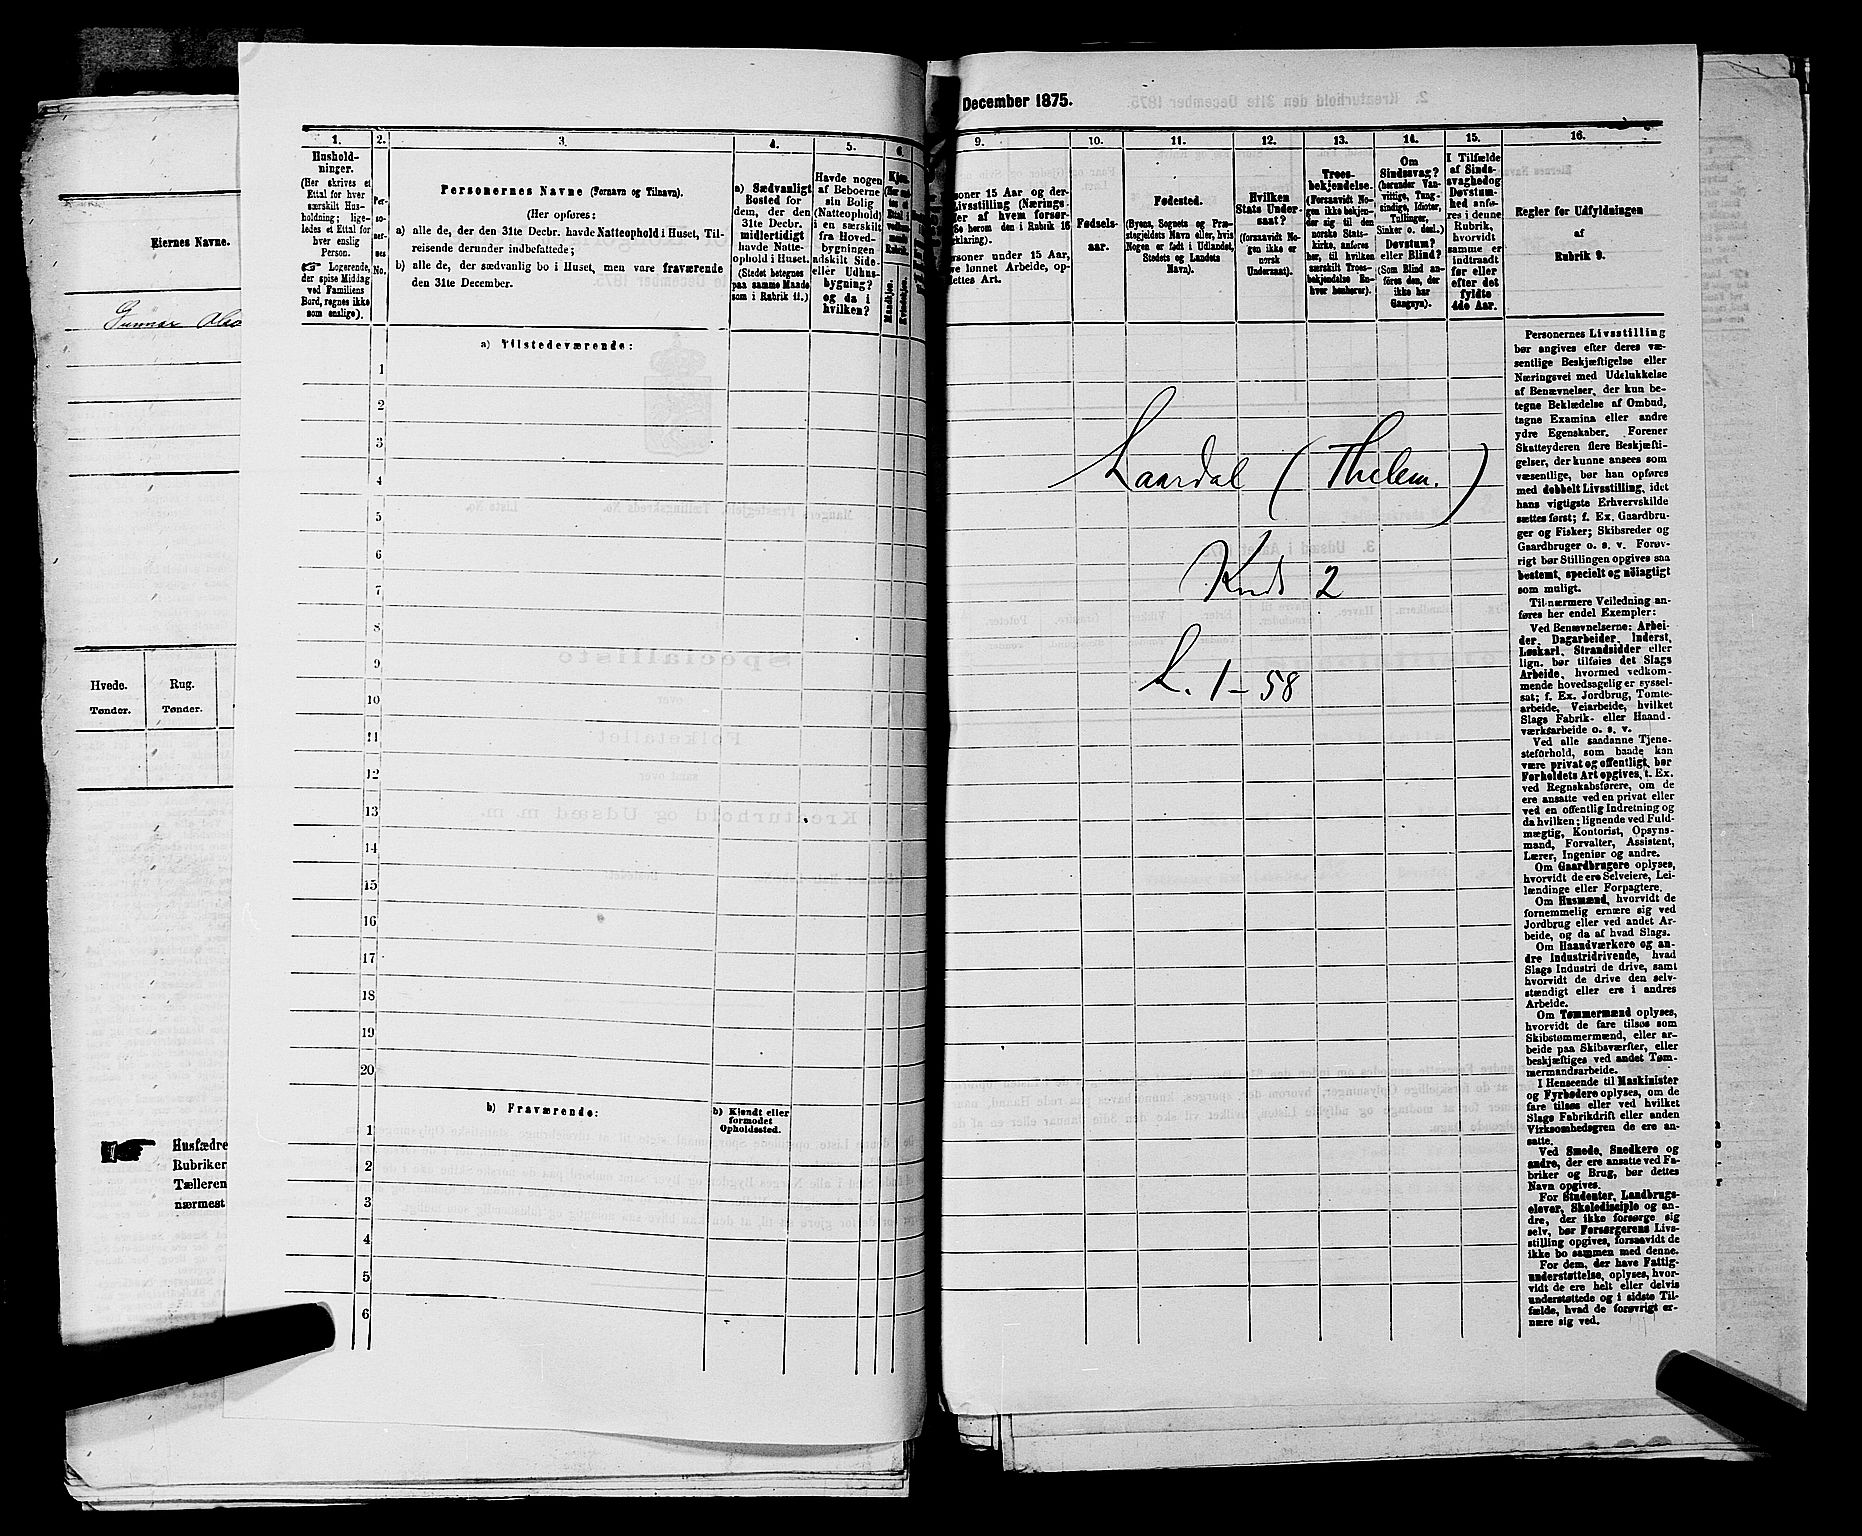 Eiernes Navne.
Gunnar
Hvede.
Tønder.
Rug.
Tønder.
Husfædre
Rubriker
Tælleren
nærmest
December 1875.
1.
Hushold-
ninger.
(Her skrives et
Ettal for hver
særskilt Hus-
holdning; lige-
ledes et Ettal for
hver enslig
Person.
☞ Logerende,
der spise Middag
ved Familiens
Bord, regnes ikke
som enslige).
2.
Per-
so-
ner-
nes
No.
3.
Personernes Navne (Fornavn og Tilnavn).
(Her opføres:
a) alle de, der den 31te Decbr. havde Natteophold i Huset, Til-
reisende derunder indbefattede;
b) alle de, der sædvanlig bo i Huset, men vare fraværende
den 31te December.
4.
a) Sædvanligt
Bosted for
dem, der den
31te Decbr.
midlertidigt
havde Natte-
ophold i Huset.
(Stedet betegnes
paa samme Maade
som i Rubrik 11.)
5.
Havde nogen
af Beboerne
sin Bolig
(Natteophold)
i en særskilt
fra Hoved-
bygningen
adskilt Side-
eller Udhus-
bygning?
og da i
hvilken?
6.
Kjøn.
Mandkjøn.
Kvindekjøn.
a) Tilstedeværende:
1
2
3
4
5
6
7
8
9
10
11
12
13
14
15
16
17
18
19
20
b) Fraværende:
b) Kjendt eller
formodet
Opholdssted.
1
2
3
4
5
6
9.
soner 15 Aar og der-
Livsstilling (Nærings-
ler af hvem forsør-
Se herom den i Rubrik 16
rklaring).
soner under 15 Aar,
re lønnet Arbeide, op-
dettes Art.
10.
Fødsels-
aar.
11.
Fødested.
(Byens, Sognets og Præ-
stegjeldets Navn eller, hvis
Nogen er født i Udlandet,
Stedets og Landets
Navn).
12.
Hvilken
Stats Under-
saat?
(forsaavidt No-
gen ikke er
norsk
Undersaat).
13.
Troes-
bekjendelse.
(Forsaavidt No-
gen ikke bekjen-
der sig til den
norske Stats-
kirke, anføres
her, til hvilken
særskilt Troes-
bekjendelse En-
hver henhører).
14.
Om
Sindssvag?
(herunder Van-
vittige, Tung-
sindige, Idioter,
Tullinger,
Sinker o. desl.)
Døvstum?
eller Blind?
(Som Blind an-
føres den, der
ikke har
Gangsyn).
15.
I Tilfælde
af Sinds-
svaghed og
Døvstum-
hed anfø-
res i denne
Rubrik,
hvorvidt
samme er
indtraadt
før eller
efter det
fyldte
4de Aar.
16.
Regler for Udfyldningen
af
Rubrik 9.
Laardal (Thelem.)
Kreds 2
L. 1–58
Personernes Livsstilling
bør angives efter deres væ-
sentlige Beskjæftigelse eller
Næringsvei med Udelukkelse
af Benævnelser, der kun be-
tegne Beklædelse af Ombud,
tagne Examina eller andre
ydre Egenskaber. Forener
Skatteyderen flere Beskjæfti-
gelser, der kunne ansees som
væsentlige, bør han opføres
med dobbelt Livsstilling, idet
hans vigtigste Erhvervskilde
sættes først; f. Ex. Gaardbru-
ger og Fisker; Skibsreder og
Gaardbruger o. s. v. Forøv-
rigt bør Stillingen opgives saa
bestemt, specielt og nøiagtigt
som muligt.
Til nærmere Veiledning an-
føres her endel Exempler:
Ved Benævnelserne: Arbei-
der, Dagarbeider, Inderst,
Løskarl, Strandsidder eller
lign. bør tilføies det Slags
Arbeide, hvormed vedkom-
mende hovedsagelig er syssel-
sat; f. Ex. Jordbrug, Tomte-
arbeide, Veiarbeide, hvilket
Slags Fabrik- eller Haand-
værksarbeide o. s. v.
Ved alle saadanne Tjene-
steforhold, som baade kan
være privat og offentligt, bør
Forholdets Art opgives, t. Ex.
ved Regnskabsførere, om de
ere ansatte ved en privat eller
ved en offentlig Indretning og
da hvilken; lignende ved Fuld-
mægtig, Kontorist, Opsyns-
mand, Forvalter, Assistent,
Lærer, Ingeniør og andre.
Om Gaardbrugere oplyses,
hvorvidt de ere Selveiere, Lei-
lændinge eller Forpagtere.
Om Husmænd, hvorvidt de
fornemmelig ernære sig ved
Jordbrug eller ved andet Ar-
beide, og da af hvad Slags.
Om Haandværkere og an-
dre Industridrivende, hvad
Slags Industri de drive, samt
hvorvidt de drive den selv-
stændigt eller ere i andres
Arbeide.
Om Tømmermænd oplyses,
hvorvidt de fare tilsøs som
Skibstømmermænd, eller ar-
beide paa Skibsværfter, eller
beskjæftiges ved andet Tøm-
mermandsarbeide.
I Henseende til Maskinister
og Fyrbødere oplyses, om de
fare tilsøs eller ved hvilket
Slags Fabrikdrift eller anden
Virksomhedsgren de ere an-
satte.
Ved Smede, Snedkere og
andre, der ere ansatte ved Fa-
briker og Brug, bør dettes
Navn opgives.
For Studenter, Landbrugs-
elever, Skoledisciple og an-
dre, der ikke forsørge sig
selv, bør Forsørgerens Livs-
stilling opgives, forsaavidt de
ikke bo sammen med denne.
For dem, der have Fattig-
understøttelse, oplyses, hvor-
vidt de ere helt eller delvis
understøttede og i sidste Til-
fælde, hvad de forøvrigt er-
nære sig ved.